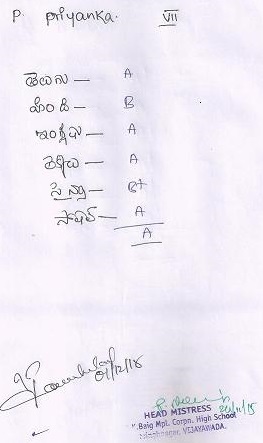 P. Priyanka. VII
తెలుగు — A
హిందీ — B
ఇంగ్లీషు — A
లెక్కలు — A
సైన్సు — B+
సోషల్ — A
A
01/12/15
HEAD MISTRESS
Baig Mpl. Corpn. High School
VIJAYAWADA.